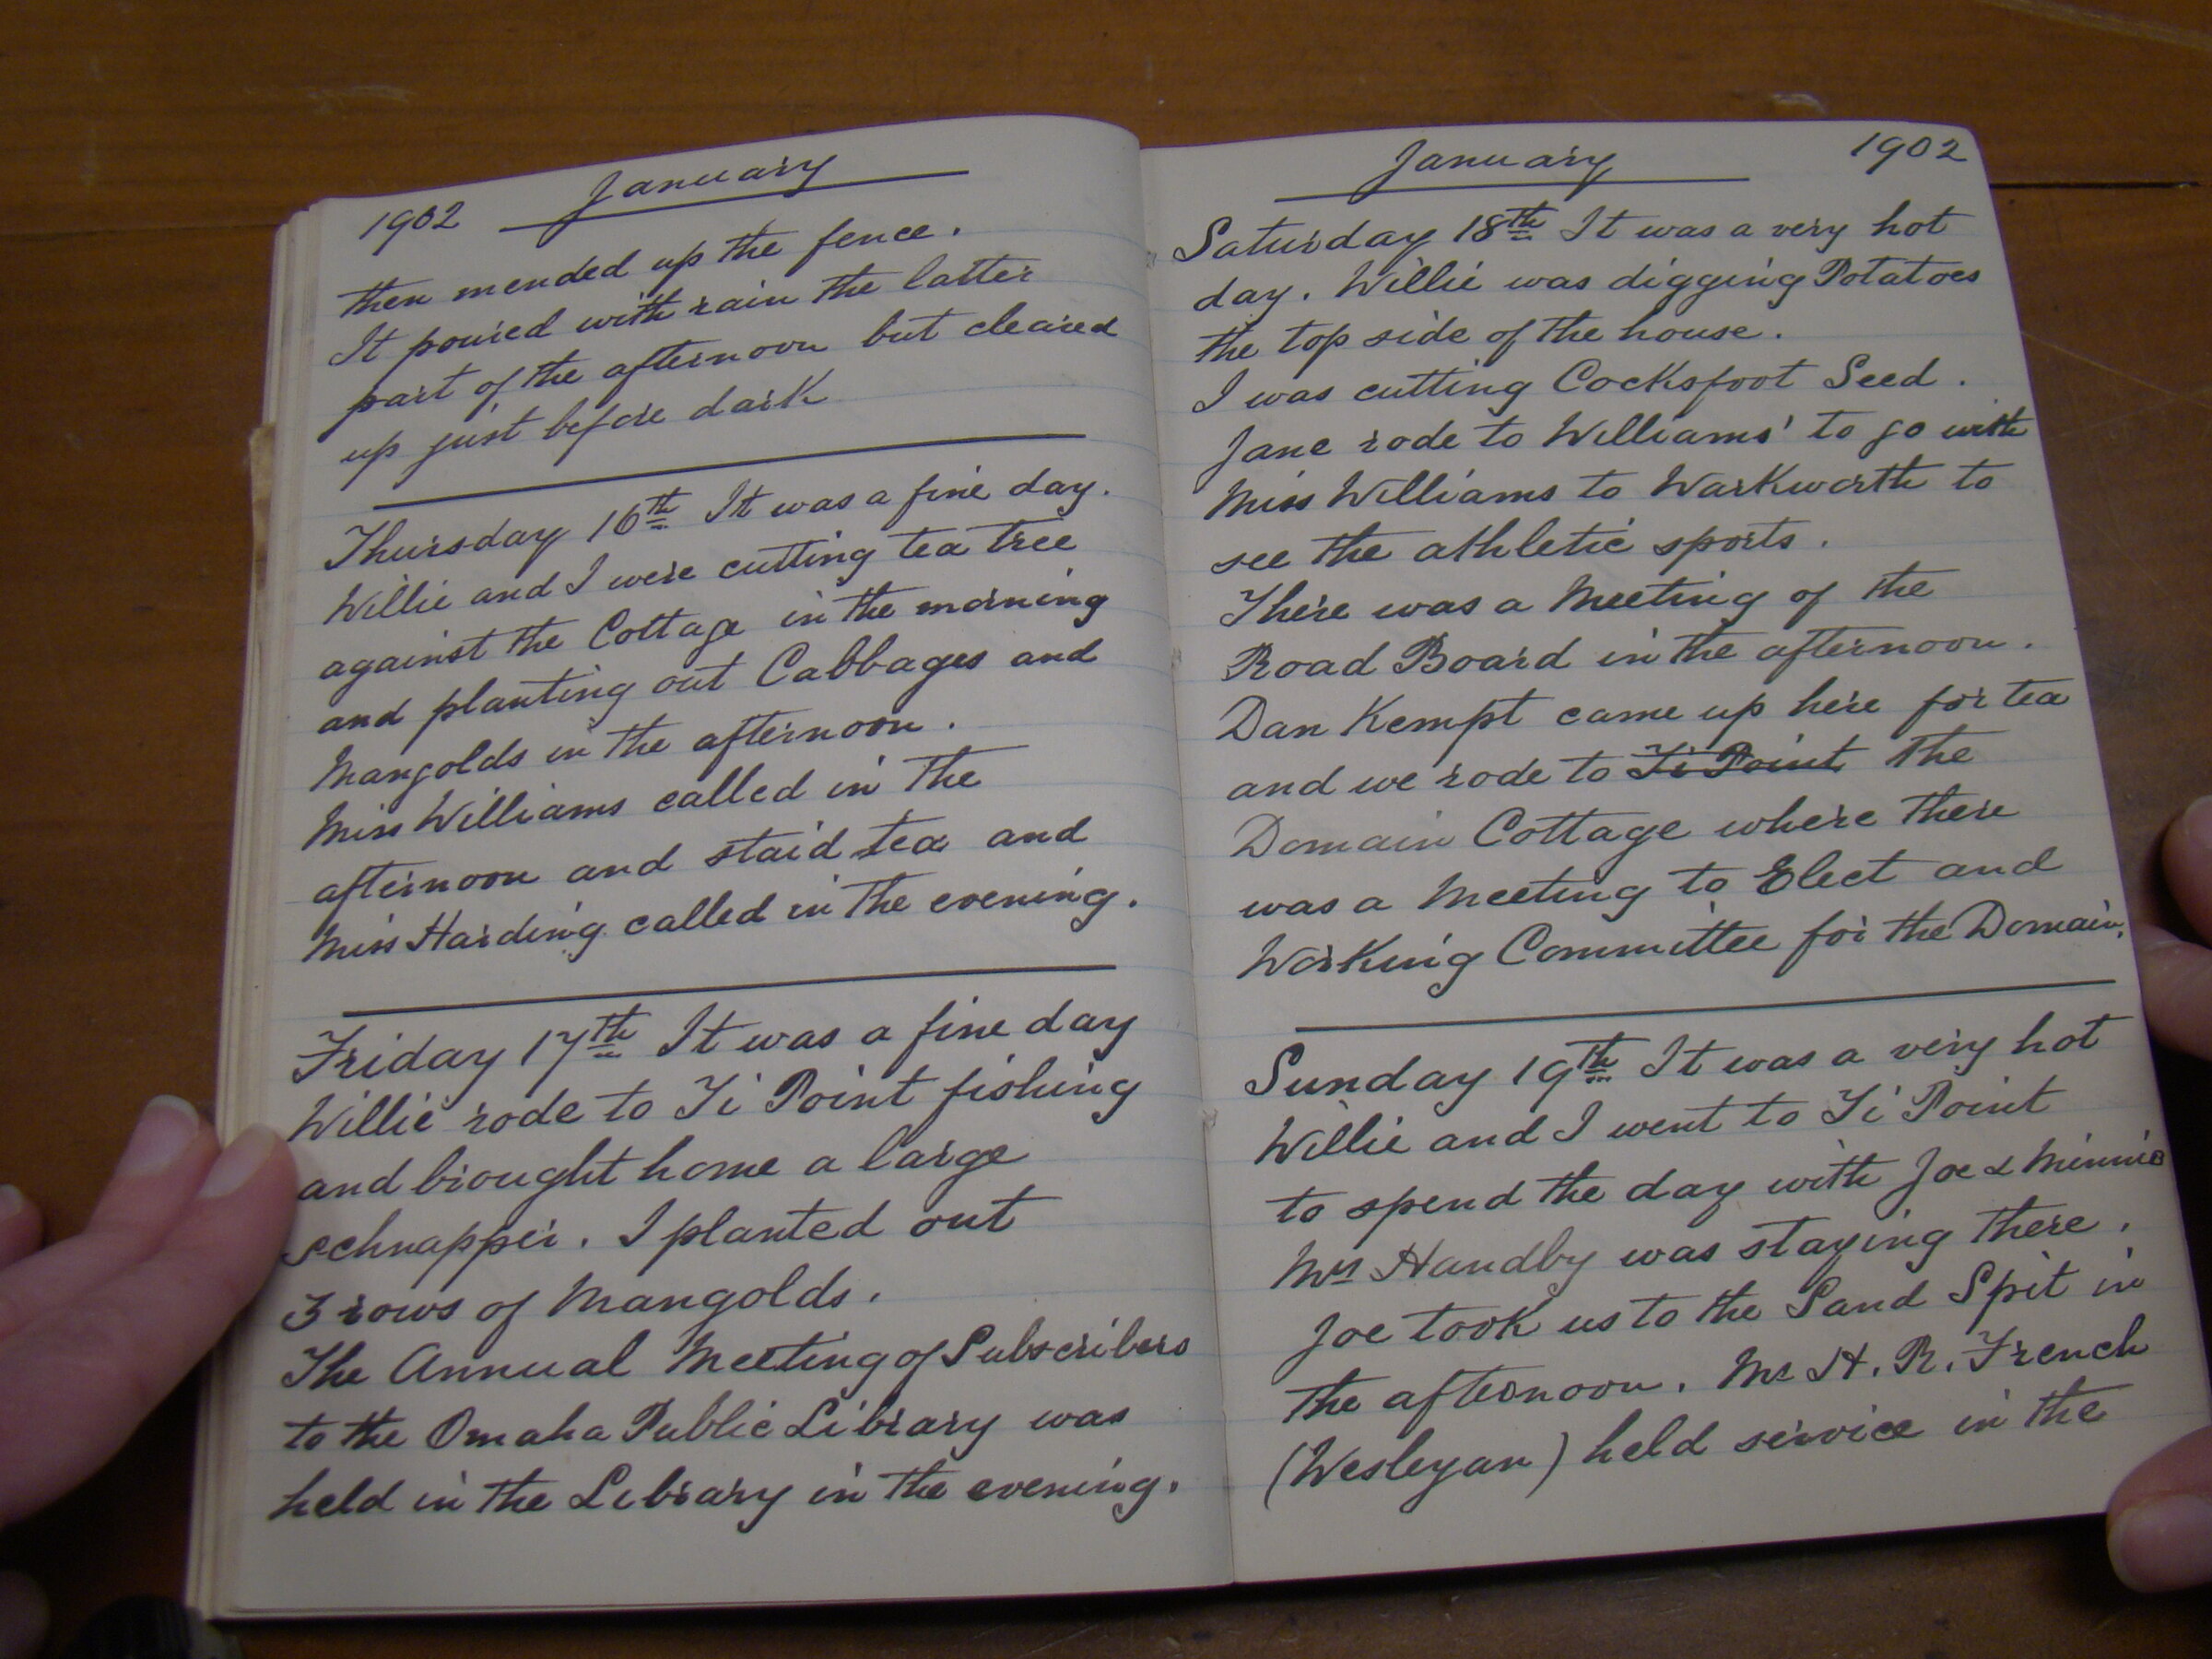 1902 January
then mended up the fence.
It poured with rain the latter
part of the afternoon but cleared
up just before dark
Thursday 16th It was a fine day.
Willie and I were cutting tea tree
against the Cottage in the morning
and planting out Cabbages and
Mangolds in the afternoon.
Miss Williams called in the
afternoon and staid tea and
Miss Harding called in the evening.
Friday 17th It was a fine day
Willie rode to Ti Point fishing
and brought home a large
schnapper. I planted out
3 rows of Mangolds.
The Annual Meeting of Subscribers
to the Omaha Public Library was
held in the Library in the evening.
January 1902
Saturday 18th It was a very hot
day. Willie was digging Potatoes
the top side of the house.
I was cutting Cocksfoot Seed.
Jane rode to Williams' to go with
Miss Williams to Warkworth to
see the athletic sports.
There was a Meeting of the
Road Board in the afternoon.
Dan Kempt came up here for tea
and we rode to Ti Point the
Domain Cottage where there
was a Meeting to Elect and
Working Committee for the Domain.
Sunday 19th It was a very hot
Willie and I went to Ti Point
to spend the day with Joe & Minnie
Mrs Handby was staying there.
Joe took us to the Sand Spit in
the afternoon. Mr H. R. French
(Wesleyan) held service in the